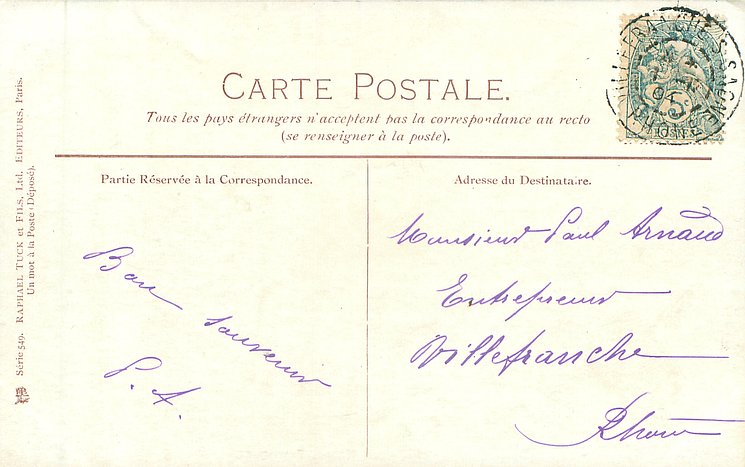 CARTE POSTALE.
Tous les pays étrangers n'acceptent pas la correspondance au recto
(se renseigner à la poste).
Partie Réservée à la Correspondance.
Bon souvenir
P. A.
Adresse du Destinataire.
Monsieur Paul Arnaud
Entrepreneur
Villefranche
Rhône
Série 549. RAPHAEL TUCK et FILS, Ltd. EDITEURS, Paris.
Un mot à la Poste (Déposé).
VILLEFRANCHE S. SAONE
RHONE
5